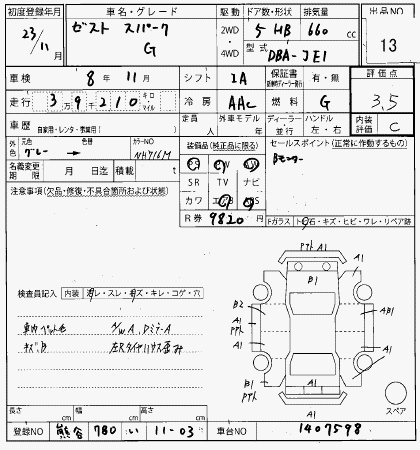 初度登録年月 車名・グレード 駆動 ドア数・形状 排気量 出品NO
23/11月 ゼスト スパーク G 2WD 4WD 5 HB 660 cc 13
型式 DBA-JE1
車検 8年 11月 シフト IA 保証書 有・無 評価点
走行 39210 キロ・マイル 冷房 AAC 燃料 G 3.5
車歴 自家用・レンタ・事業用( ) 定員 人 外車モデル 年 ディーラー 並行 ハンドル 左・右 内装評価 C
外色 元色 グレー 色替 カラーNO NH716M 装備品(純正品に限る) セールスポイント(正常に作動するもの)
名義変更期限 月 日迄 積載 t PS AW
SR TV ナビ
注意事項(欠品・修復・不具合箇所および状態) カワ
R券 9820 Fガラス 石・キズ・ヒビ・ワレ・リペア跡
検査員記入 内装 スレ・キズ・キレ・コゲ・穴
A1
B1
A1 A1
B2 AB1
A1
A1
B1 A1
A1 スペア
長さ cm 幅 cm 高さ cm
登録NO 熊谷 780 い 11-03 車台NO 1407598